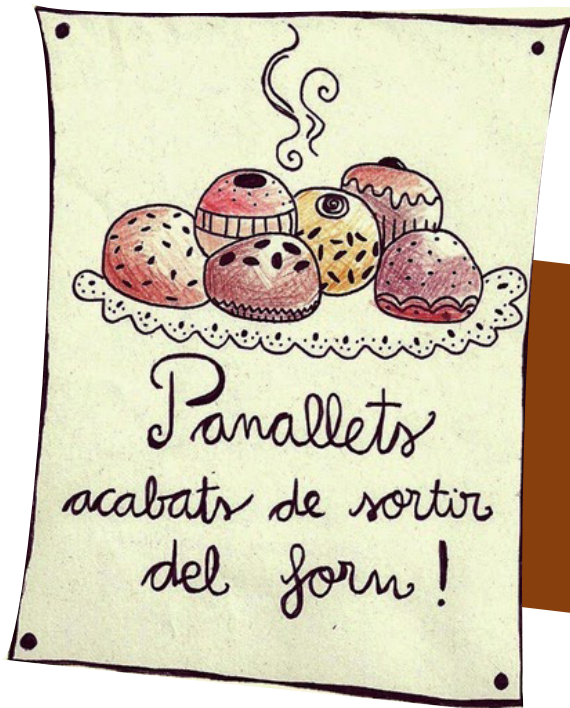 Panallets
acabats de sortir
del forn !